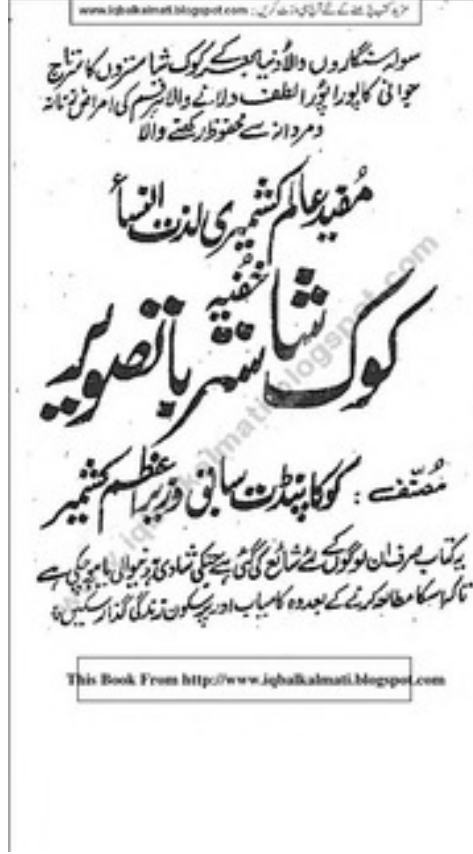 مزید کتب پڑھنے کے لئے آج ہی وزٹ کریں : www.iqbalkalmati.blogspot.com
سولہ سنگاروں والا دُنیا بھر کے کوک شاستروں کا نتاج
جوانی کا پورا پورا لطف دلانے والا ہر قسم کی امراض زنانہ
و مردانہ سے محفوظ رکھنے والا
مُفید عالم کشمیری لذت النساء
خُفیہ
کوک شاستر باتصویر
مُصنّفے : کوکا پنڈت سابق وزیر اعظم کشمیر
یہ کتاب صرف ان لوگوں کے لئے شائع کی گئی ہے جنکی شادی ہونیوالی یا ہوچکی ہے
تاکہ اسکا مطالعہ کرنے کے بعد وہ کامیاب اور پرسکون زندگی گذار سکیں۔
This Book From http://www.iqbalkalmati.blogspot.com
www.iqbalkalmati.blogspot.com